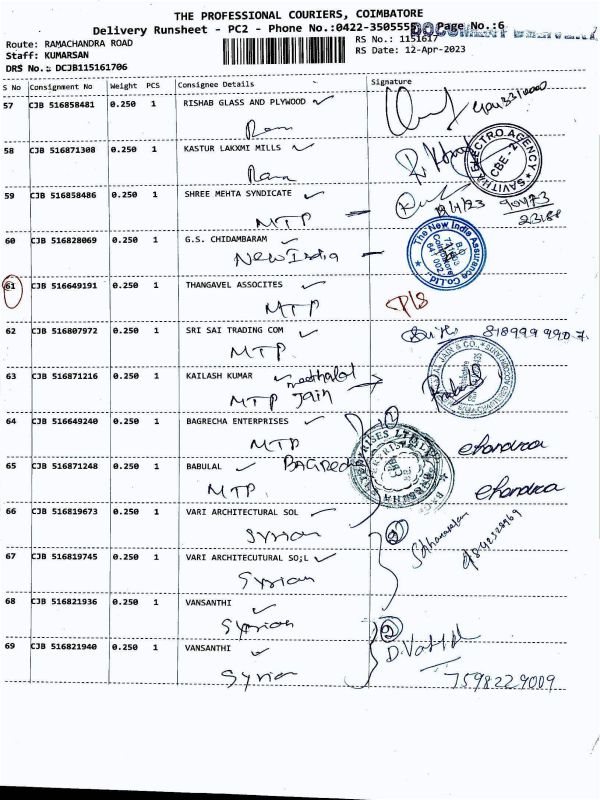 THE PROFESSIONAL COURIERS, COIMBATORE
Delivery Runsheet - PC2 - Phone No.:0422-3505555 Page No.:6
Route: RAMACHANDRA ROAD RS No.: 1151617
Staff: KUMARSAN RS Date: 12-Apr-2023
DRS No.: DCJB115161706
S No Consignment No Weight PCS Consignee Details Signature
57 CJB 516858481 0.250 1 RISHAB GLASS AND PLYWOOD
Ram
58 CJB 516871308 0.250 1 KASTUR LAKXMI MILLS
Ram
SAVITHA ELECTRO AGENCY
CBE - 2
59 CJB 516858486 0.250 1 SHREE MEHTA SYNDICATE
MTP
60 CJB 516828069 0.250 1 G.S. CHIDAMBARAM
New India
The New India Assurance Co. Ltd.
61 CJB 516649191 0.250 1 THANGAVEL ASSOCITES
MTP P/S
62 CJB 516807972 0.250 1 SRI SAI TRADING COM
MTP
63 CJB 516871216 0.250 1 KAILASH KUMAR
MTP Jain
64 CJB 516649240 0.250 1 BAGRECHA ENTERPRISES
MTP chandraa
65 CJB 516871248 0.250 1 BABULAL
MTP chandraa
66 CJB 516819673 0.250 1 VARI ARCHITECTURAL SOL
Syrian
67 CJB 516819745 0.250 1 VARI ARCHITECUTURAL SO;L
Syrian
68 CJB 516821936 0.250 1 VANSANTHI
Syrian
69 CJB 516821940 0.250 1 VANSANTHI
Syrian 7598229009